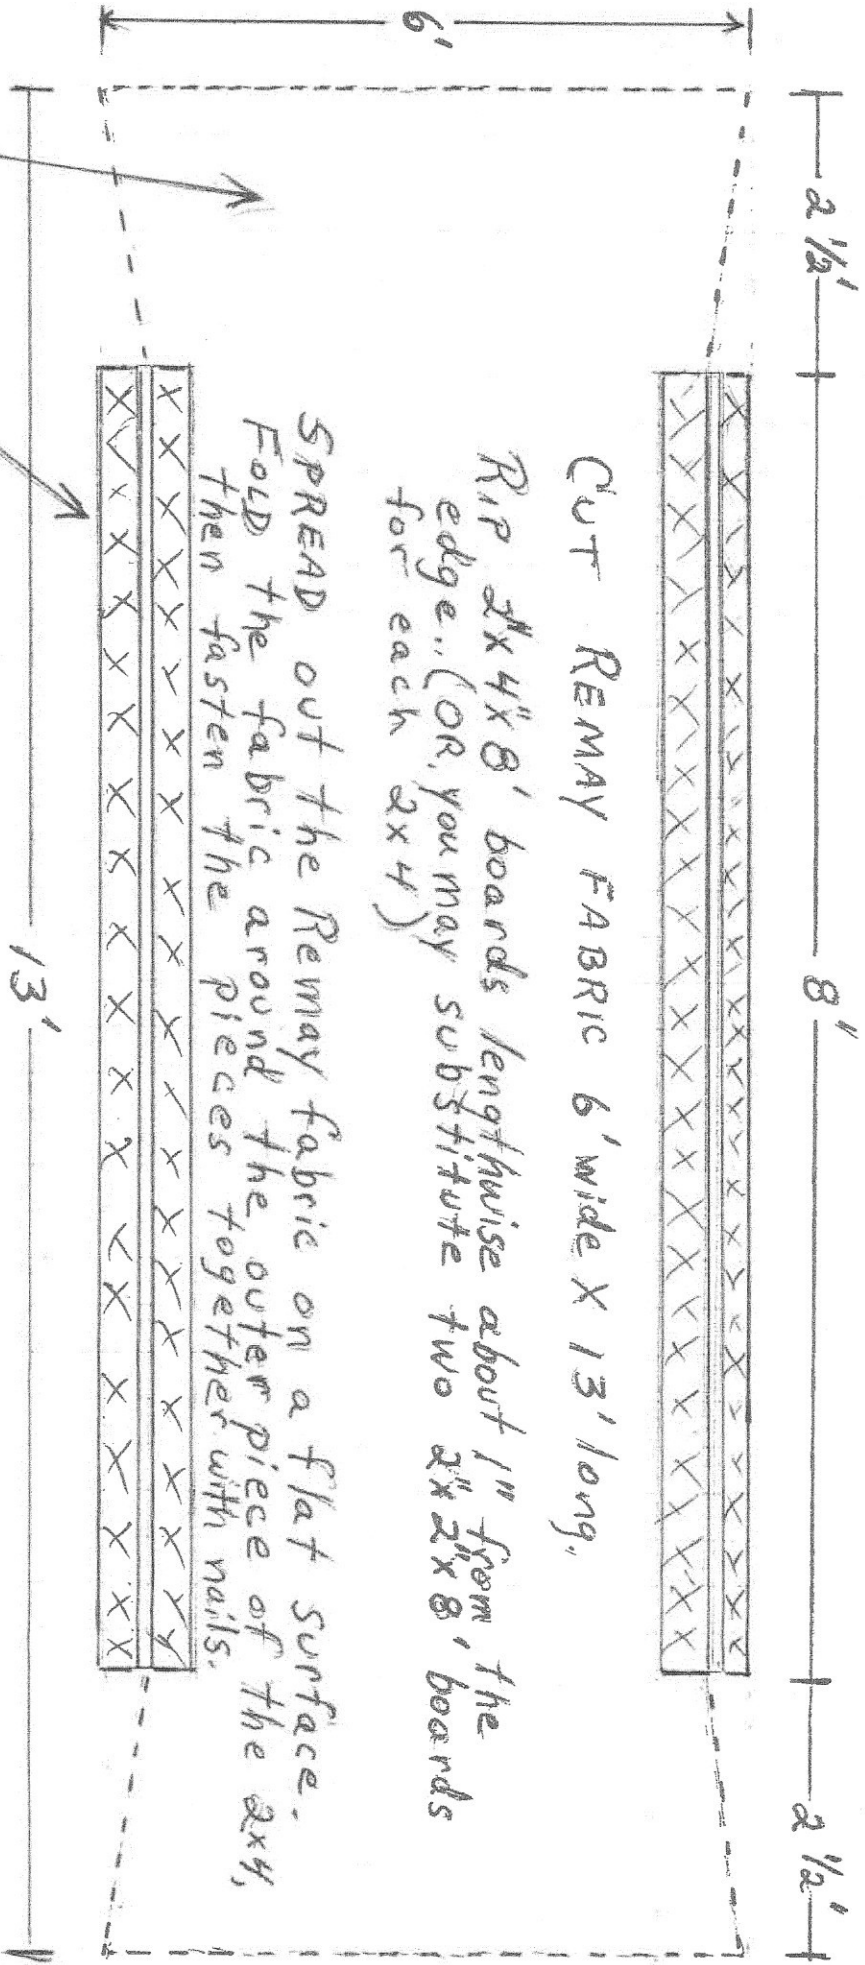 2 1/2'
8"
2 1/2'
6'
CUT REMAY FABRIC 6' wide X 13' long.
RIP 2"x 4"x 8' boards lengthwise about 1" from the
edge.. (OR, you may substitute two 2"x 2"x 8' boards
for each 2x4)
SPREAD out the Remay fabric on a flat surface.
FOLD the fabric around the outer piece of the 2x4,
then fasten the pieces together with nails.
13'